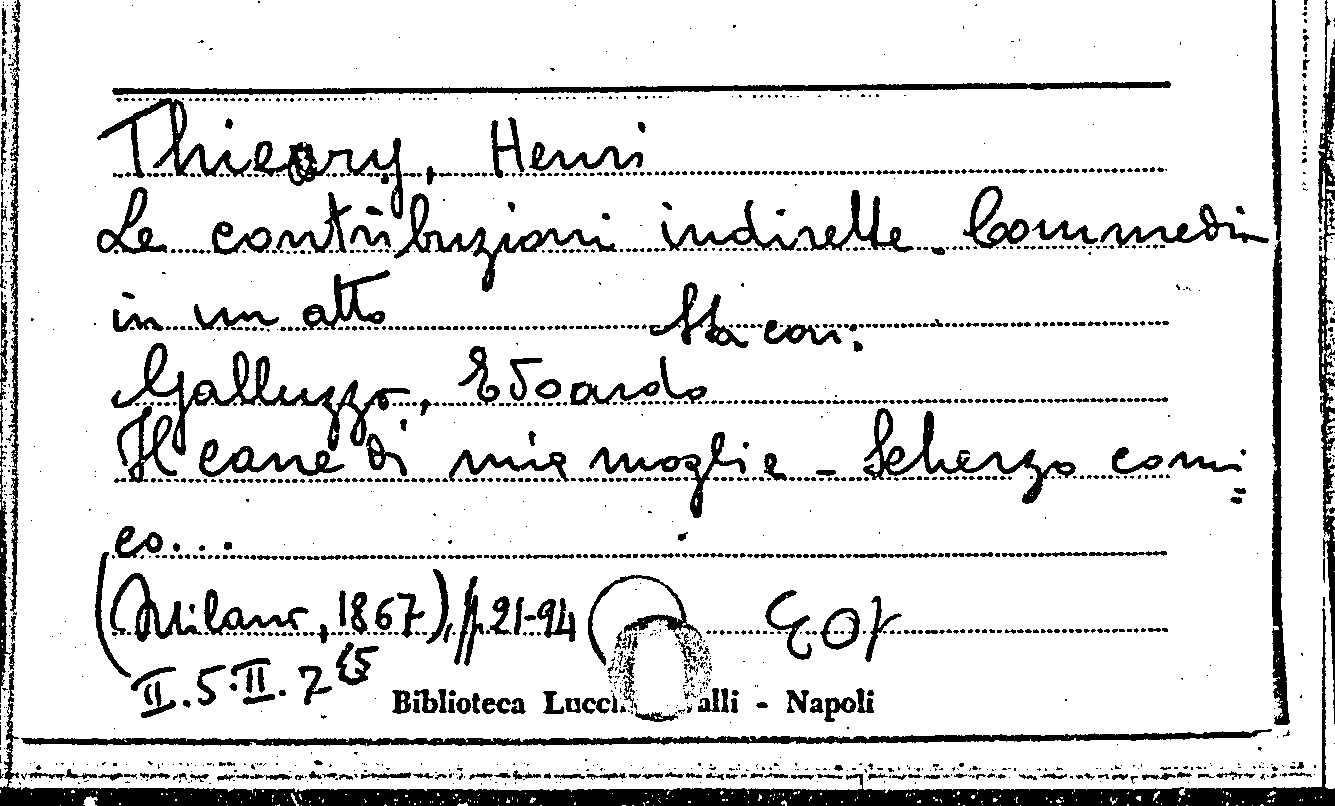 Thierry, Henri
Le contribuzioni indirette. Commedia
in un atto
Sta con:
Galluzzo, Edoardo
Il cane di mia moglie - Scherzo comi=
co...
(Milano, 1867), pp. 21-94
II.5.II.7 (5
Biblioteca Lucchesi Palli - Napoli